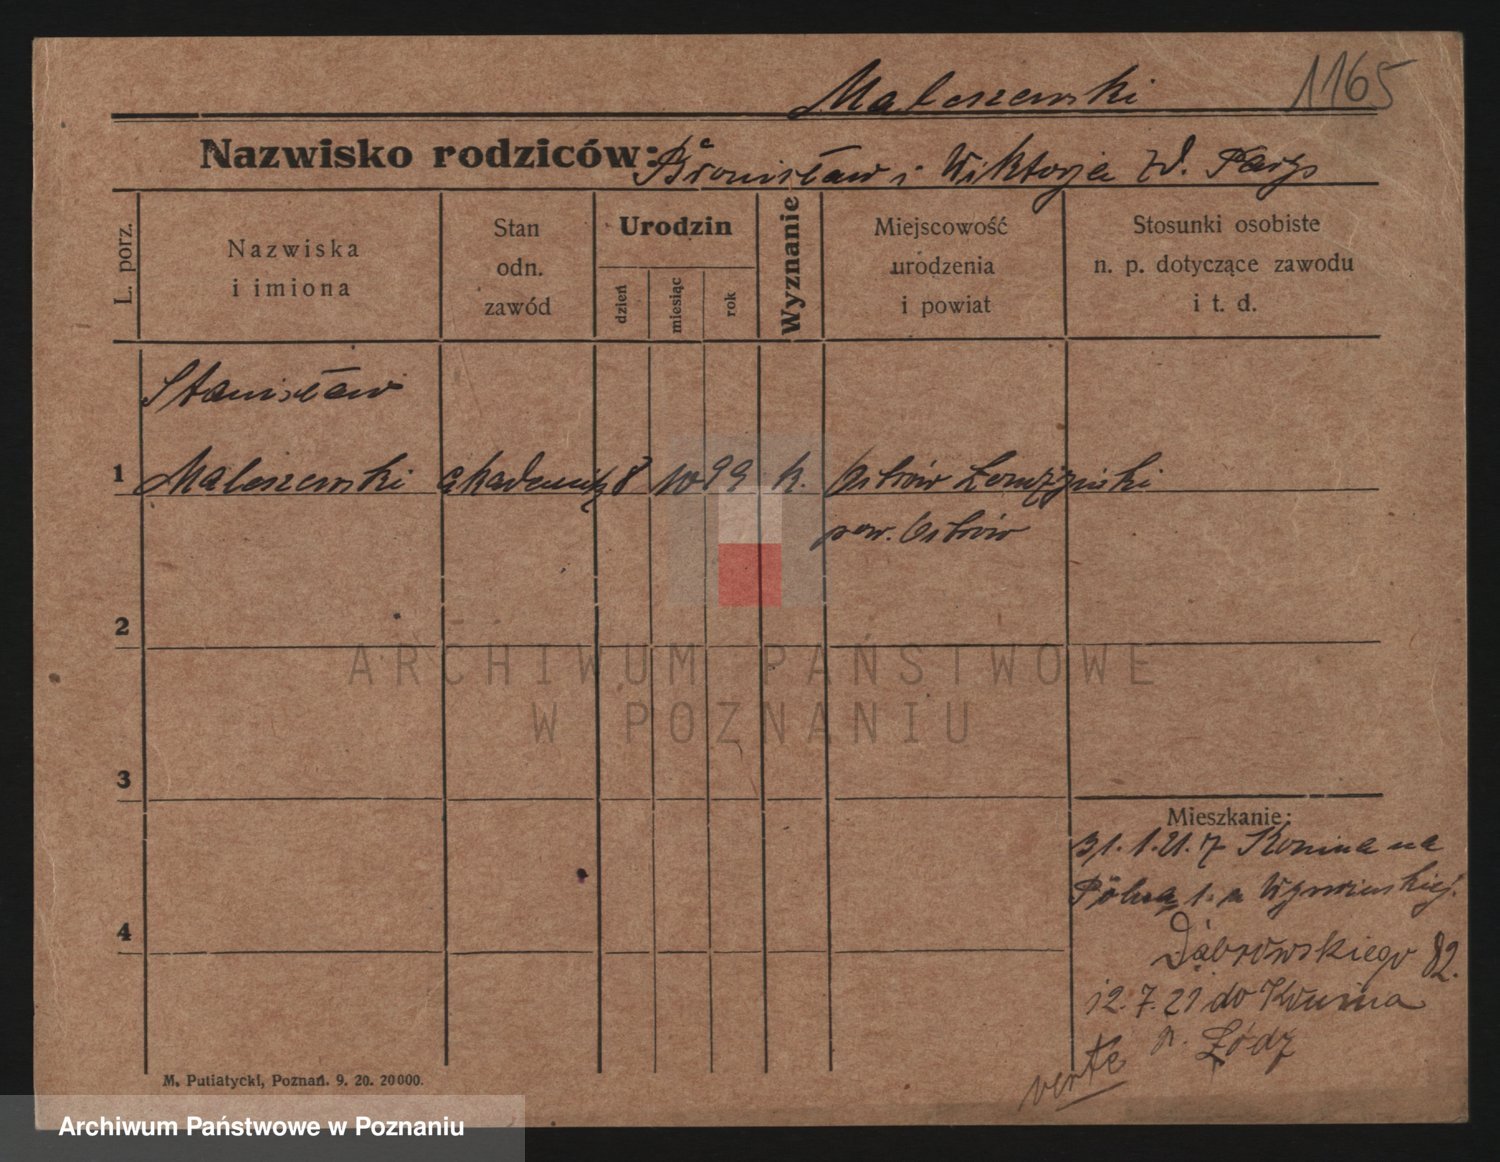 Maleszewski 1165
Nazwisko rodziców: Bronisław i Wiktorja zd.
L. porz.
Nazwiska
i imiona
Stan
odn.
zawód
Urodzin
dzień
miesiąc
rok
Wyznanie
Miejscowość
urodzenia
i powiat
Stosunki osobiste
n. p. dotyczące zawodu
i t. d.
Stanisław
1 Maleszewski akademik 8 10 99 k. Ostrów Łomżyński
pow. Ostrów
2
3
4
Mieszkanie:
31. 1. 21. z Konina na
Dąbrowskiego 82.
12. 7. 21 do Konina
Łódz
verte
M. Putiatycki, Poznań. 9. 20. 20000.
ARCHIWUM PAŃSTWOWE
W POZNANIU
Archiwum Państwowe w Poznaniu